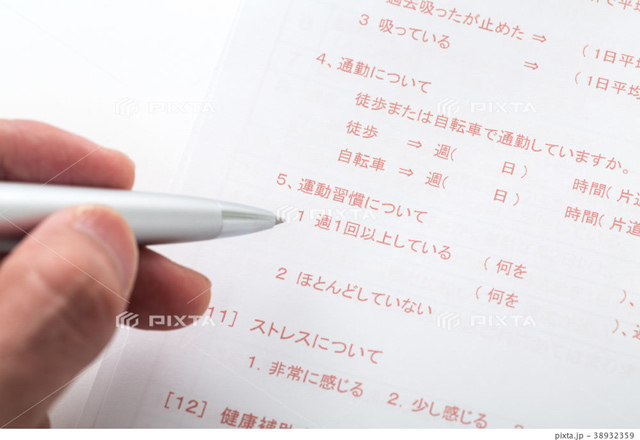 過去吸ったが止めた ⇒ (1日平均
3 吸っている ⇒ (1日平均
4、通勤について
徒歩または自転車で通勤していますか。
徒歩 ⇒ 週( 日) 時間(片道
自転車 ⇒ 週( 日) 時間(片道
5、運動習慣について
1 週1回以上している (何を )、
2 ほとんどしていない (何を )、
[11] ストレスについて
1. 非常に感じる 2. 少し感じる
[12] 健康補助
PIXTA
pixta.jp - 38932359